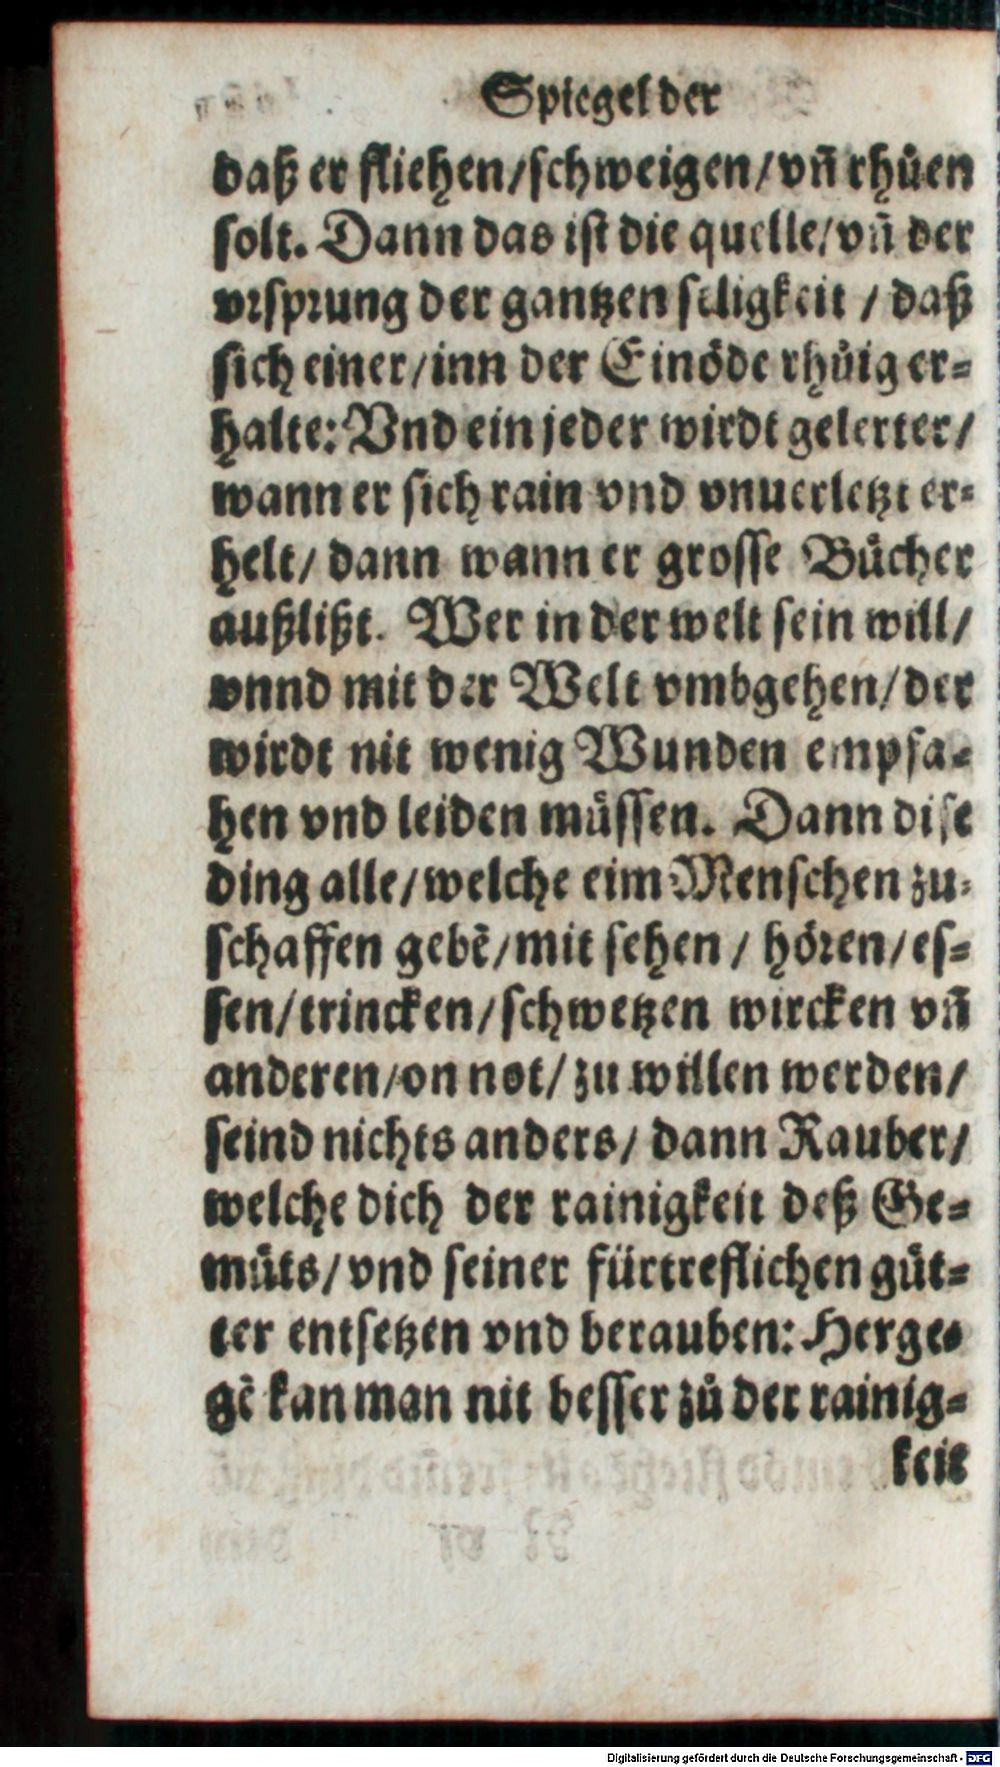 Spiegel der
daß er fliehen/schweigen/vñ rhůen
solt. Dann das ist die quelle/vñ der
vrsprung der gantzen seligkeit / daß
sich einer/inn der Einöde rhůig er=
halte: Vnd ein jeder wirdt gelerter/
wann er sich rain vnd vnuerletzt er=
helt/ dann wann er grosse Bůcher
außlißt. Wer in der welt sein will/
vnnd mit der Welt vmbgehen/der
wirdt nit wenig Wunden empfa=
hen vnd leiden můssen. Dann dise
ding alle/welche eim Menschen zu=
schaffen gebē/mit sehen / hören/es=
sen/trincken/schwetzen wircken vñ
anderen/on not/ zu willen werden/
seind nichts anders/ dann Rauber/
welche dich der rainigkeit deß Ge=
můts/vnd seiner fürtreflichen gůt=
ter entsetzen vnd berauben: Herge=
gē kan man nit besser zů der rainig=
keit
Digitalisierung gefördert durch die Deutsche Forschungsgemeinschaft - DFG